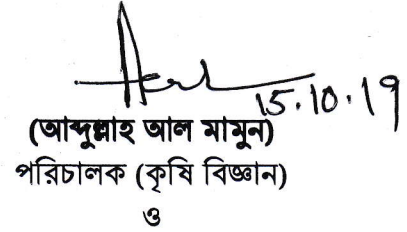 15.10.19
(আব্দুল্লাহ আল মামুন)
পরিচালক (কৃষি বিজ্ঞান)
ও